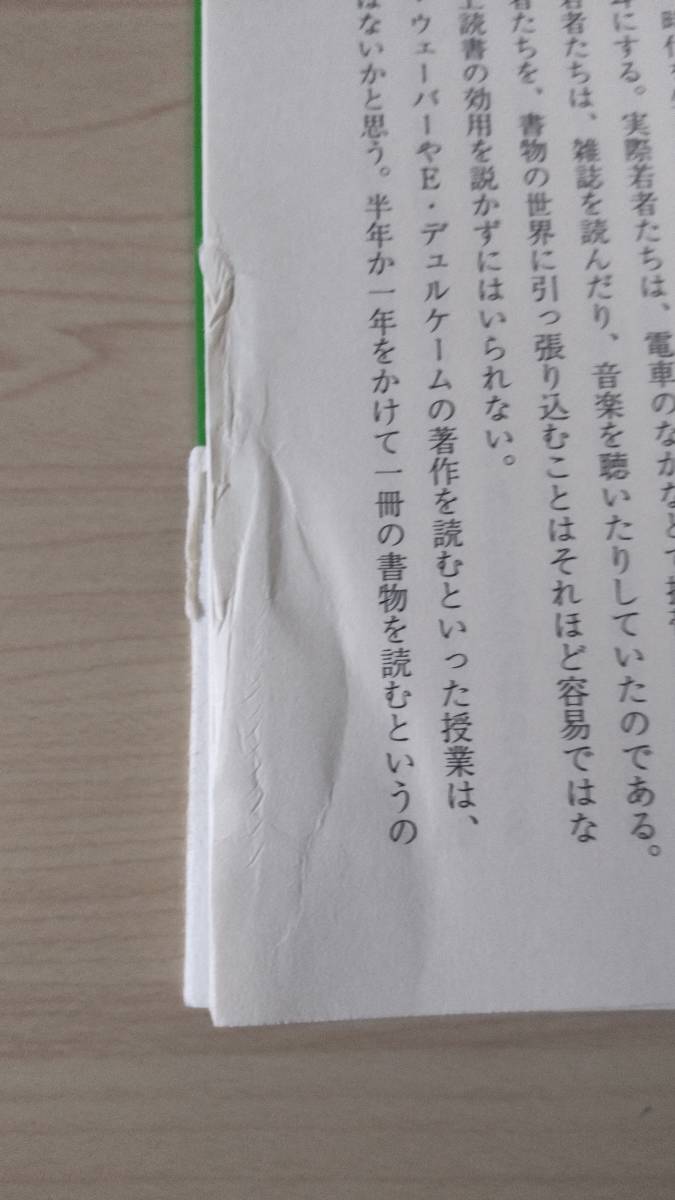 耳にする。実際若者たちは、電車のなかなどで
若者たちは、雑誌を読んだり、音楽を聴いたりしていたのである。
者たちを、書物の世界に引っ張り込むことはそれほど容易ではな
上読書の効用を説かずにはいられない。
・ウェーバーやE・デュルケームの著作を読むといった授業は、
はないかと思う。半年か一年をかけて一冊の書物を読むというの